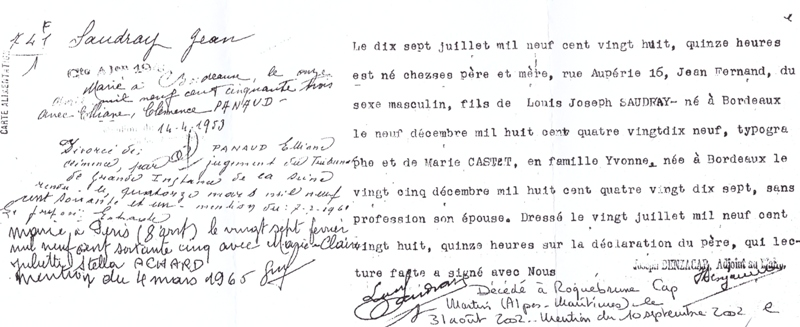 741
F
Saudray Jean
CARTE ALIMENTATION
Marié à Bordeaux, le onze
mil neuf cent cinquante trois
avec Elliane, Clémence PANAUD-
14-4-1953
Divorcé de PANAUD Elliane
Clémence, par jugement du Tribunal
de Grande Instance de la Seine
rendu le quatorze mars mil neuf
cent soixante et un - mention du: 7-2-1961
marié à Paris (8 arrt) le vingt sept février
mil neuf cent soixante cinq avec Marie-Claire
Juliette Stella ACHARD
mention du 4 mars 1965
Le dix sept juillet mil neuf cent vingt huit, quinze heures
est né chezses père et mère, rue Aupérie 16, Jean Fernand, du
sexe masculin, fils de Louis Joseph SAUDRAY- né à Bordeaux
le neuf décembre mil huit cent quatre vingtdix neuf, typogra
phe et de Marie CASTET, en famille Yvonne, née à Bordeaux le
vingt cinq décembre mil huit cent quatre vingt dix sept, sans
profession son épouse. Dressé le vingt juillet mil neuf cent
vingt huit, quinze heures sur la déclaration du père, qui lec-
ture faite a signé avec Nous
Joseph BENZACAR, Adjoint au Maire
Décédé à Roquebrune Cap
Martin (Alpes-Maritimes) le
31 août 2002. Mention du 10 septembre 2002